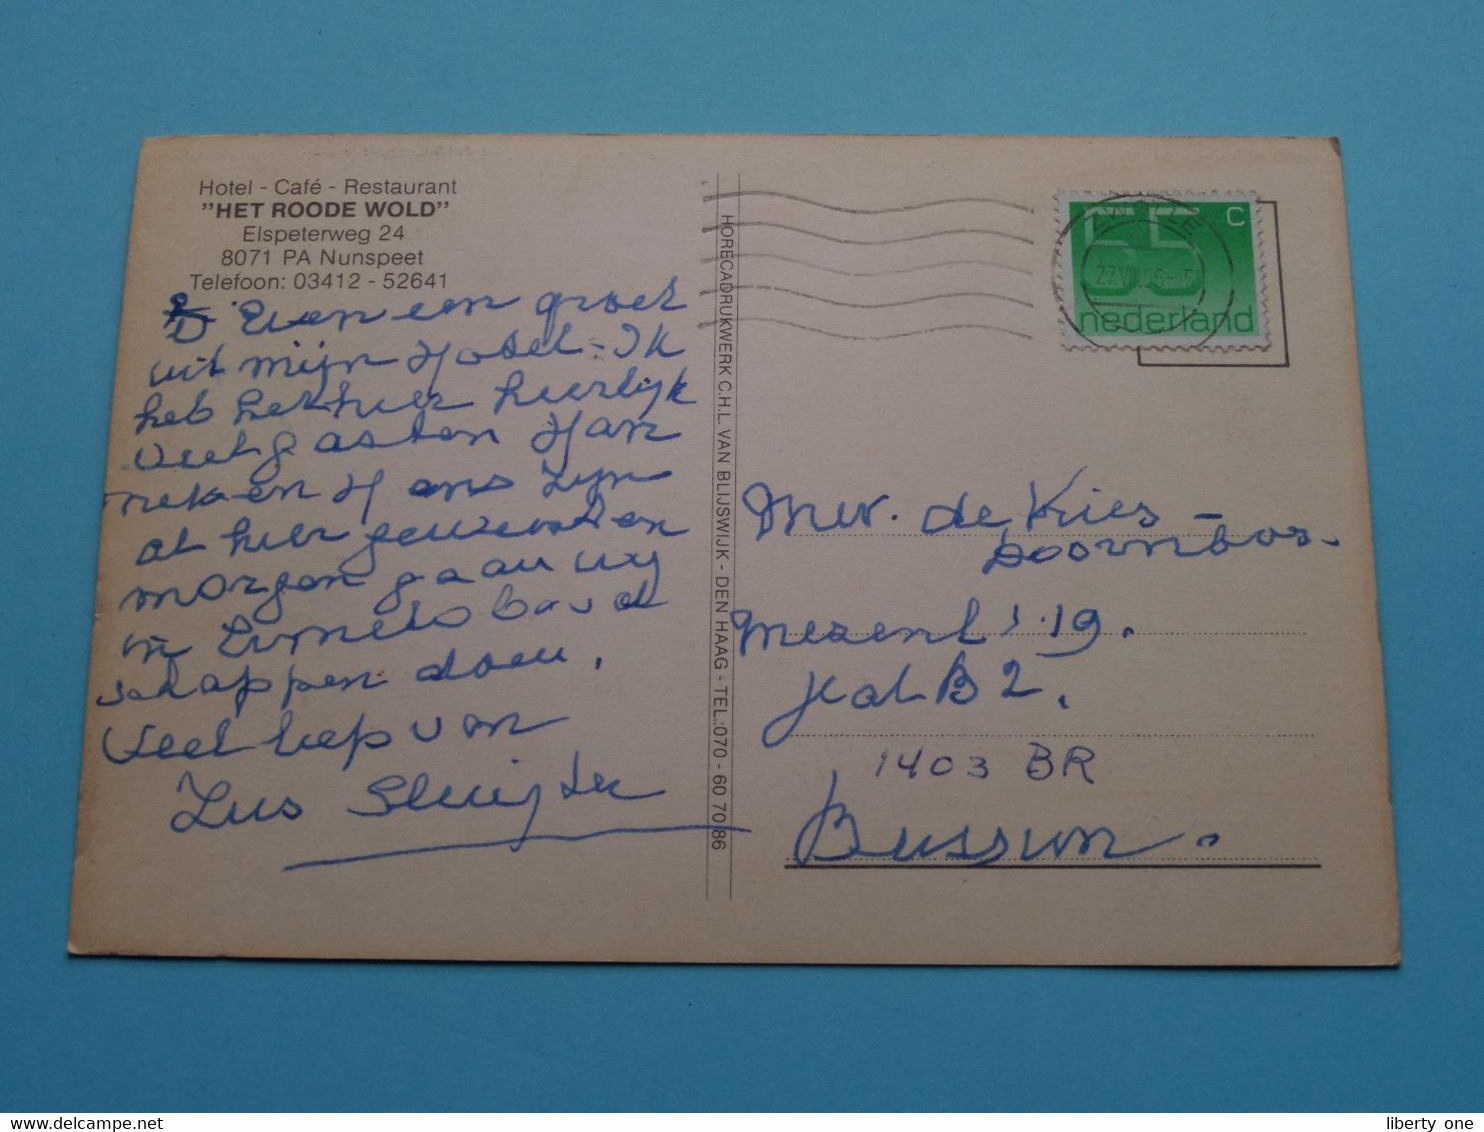 Hotel - Café - Restaurant
"HET ROODE WOLD"
Elspeterweg 24
8071 PA Nunspeet
Telefoon: 03412 - 52641
Even een groet
uit mijn Hotel - Ik
heb het hier heerlijk
veel gasten Han
nek en Hans zijn
al hier geweest en
morgen gaan wij
in bood
schappen doen.
Veel liefs van
Zus Sluijter
HORECADRUKWERK C.H.L. VAN BLIJSWIJK - DEN HAAG - TEL.:070 - 60 70 86
ZWOLLE
65 c
nederland
Mevr. de Kries -
Doornbos.
Mezenl. 19.
Kat B2.
1403 BR
Bussum.
liberty one